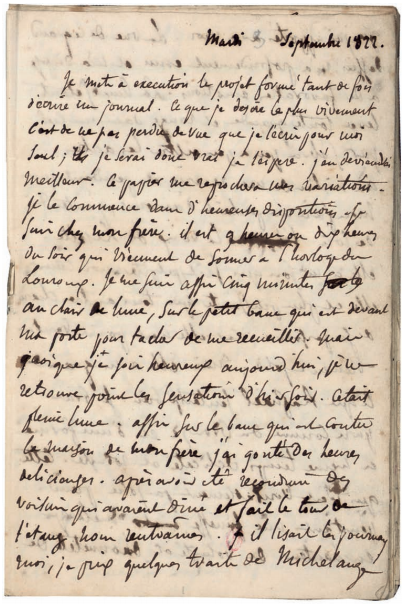 Mardi 3 Septembre 1822.
Je mets à execution le projet formé tant de fois
d'écrire un journal. Ce que je desire le plus vivement
c'est de ne pas perdre de vue que je l'ecris pour moi
seul; je serai donc vrai je l'espere. j'en deviendrai
meilleur. Ce papier me reprochera mes variations.
je le commence dans d'heureuses dispositions. Je
suis chez mon frère. il est 9 heures ou dix heures
du soir qui viennent de sonner à l'horloge du
Louroux. Je me suis assis cinq minutes
au clair de lune, sur le petit banc qui est devant
ma porte pour tacher de me recueillir. Mais
quoique je sois heureux aujourd'hui, je ne
retrouve point les sensations d'hier soir. C'etait
pleine lune. assis sur le banc qui est contre
la maison de mon frère j'ai gouté des heures
delicieuses. après avoir été reconduire des
voisins qui avaient diné et fait le tour de
l'etang nous rentrames. il lisait les journaux
moi, je pris quelques traits de Michelange